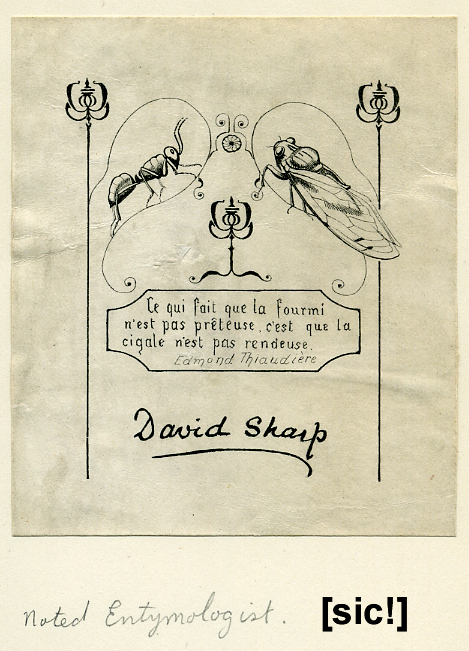 Ce qui fait que la fourmi
n'est pas prêteuse, c'est que la
cigale n'est pas rendeuse.
Edmond Thiaudière
David Sharp
noted Entymologist.
[sic!]